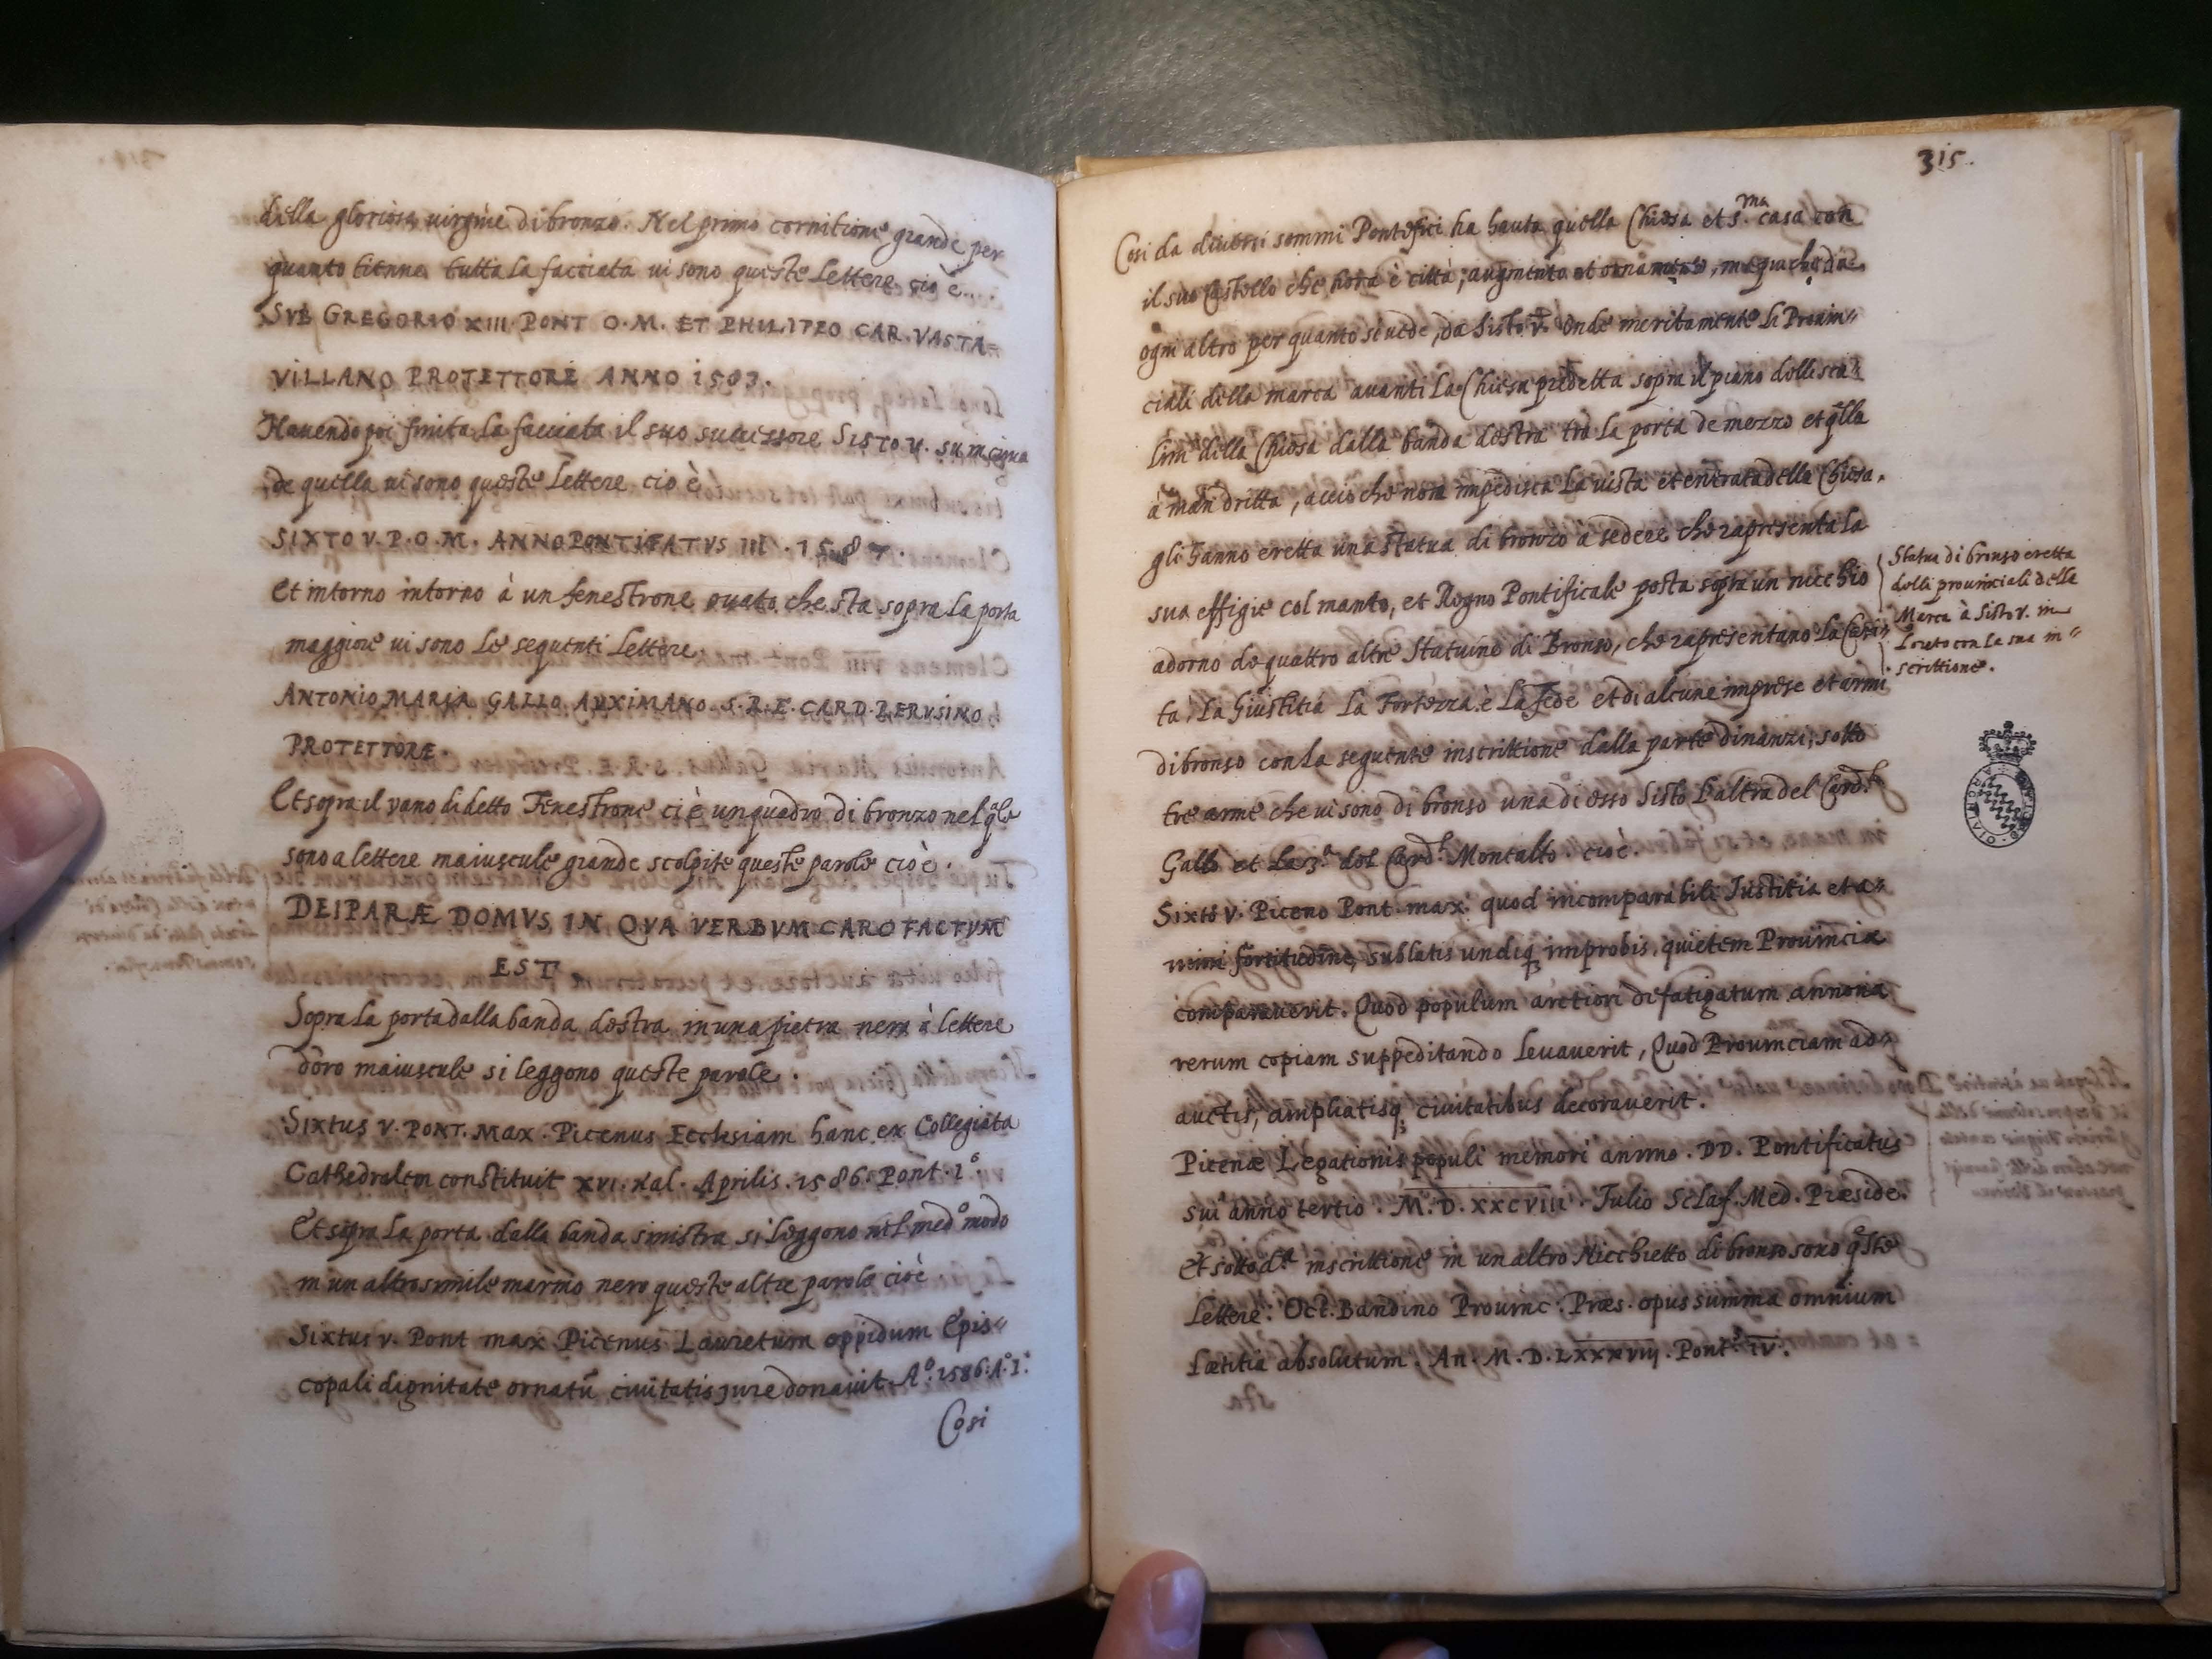 della gloriosa virgine di bronzo. Nel primo cornitione grande per
quanto tienne tutta la facciata vi sono queste lettere cio è...
SVB GREGORIO XIII PONT O. M. ET PHILIPPO CAR. VASTA=
VILLANO PROTETTORE ANNO 1583.
Havendo poi finita la facciata il suo successore SISTO V. su in cima
de quella vi sono queste lettere cio è
SIXTO V. P. O. M. ANNO PONTIFATVS III. 1587.
Et intorno intorno à un fenestrone ovato che sta sopra la porta
maggiore vi sono le seguenti lettere
ANTONIO MARIA GALLO AVXIMANO S. R. E. CARD. PERVSINO
PROTETTORE.
Et sopra il vano di detto Fenestrone ci è un quadro di bronzo nel qle
sono a lettere maiuscule grande scolpite queste parole cioè.
DEIPARÆ DOMVS IN QVA VERBVM CARO FACTVM
EST
Sopra la porta dalla banda destra in una pietra nera à lettere
doro maiuscule si leggono queste parole.
Sixtus V. PONT. Max. Picenus Ecclesiam hanc ex Collegiata
Cathedralem constituit XVI. Kal. Aprilis. 1586. Pont. 1º
Et sopra la porta dalla banda sinistra si leggono nel medº modo
in un altro simile marmo nero queste altre parole cioè
Sixtus V. Pont max Picenus Lauretum oppidum Epis"
copali dignitate ornatū civitatis jure donavit Aº. 1586. A. I.
Cosi
315.
Cosi da diversi sommi Pontefici ha hauta quella Chiesa et s.ma casa con
il suo Castello che hora è città, augmento et ornamento, ma piu che da
ogni altro per quanto si vede, da Sisto V. Onde meritamente li Provin"
ciali della marca avanti la Chiesa predetta sopra il piano delli sca"
lini della Chiesa dalla banda destra trà la porta de mezzo et qlla
à man dritta, accio che non impedisca la vista et entrata della Chiesa.
gli hanno eretta una statua di bronzo à sedere che rapresenta la
sua effigie col manto, et Regno Pontificale posta sopra un nicchio
adorno de quattro altre Statuine di Bronso, che rapresentano la Cari"
tà, La Giustitia La Fortezza è La Fede et di alcune imprese et armi
di bronso con la seguente inscrittione dalla parte dinanzi; sotto
tre arme che vi sono di bronso una di esso Sisto l'altra del Card.l
Gallo et la 3.a del Card.l Montalto. cioè.
Sixto V. Piceno Pont. max. quod incomparabili Justitia et a"
nimi fortitudine, sublatis undiq; improbis, quietem Provinciæ
comparaverit. Quod populum arctiori difatigatum annona
rerum copiam suppeditando levaverit, Quod Provinciam ad"
auctis, ampliatisq; civitatibus decoraverit.
Picenæ Legationis populi memori animo. DD. Pontificatus
sui anno tertio. M. D. XXCVIII. Julio Sclaf. Med. Præside.
Et sotto d.a inscrittione in un altro Nicchietto di bronso sono qste
Lettere: Oct. Bandino Provinc. Præs. opus summa omnium
Lætitia absolutum. An. M. D. LXXXVIIIJ. Pont. IV.
Statua di bronso eretta
delli provinciali della
Marca à Sisto V. in
Loreto con la sua in"
scrittione.